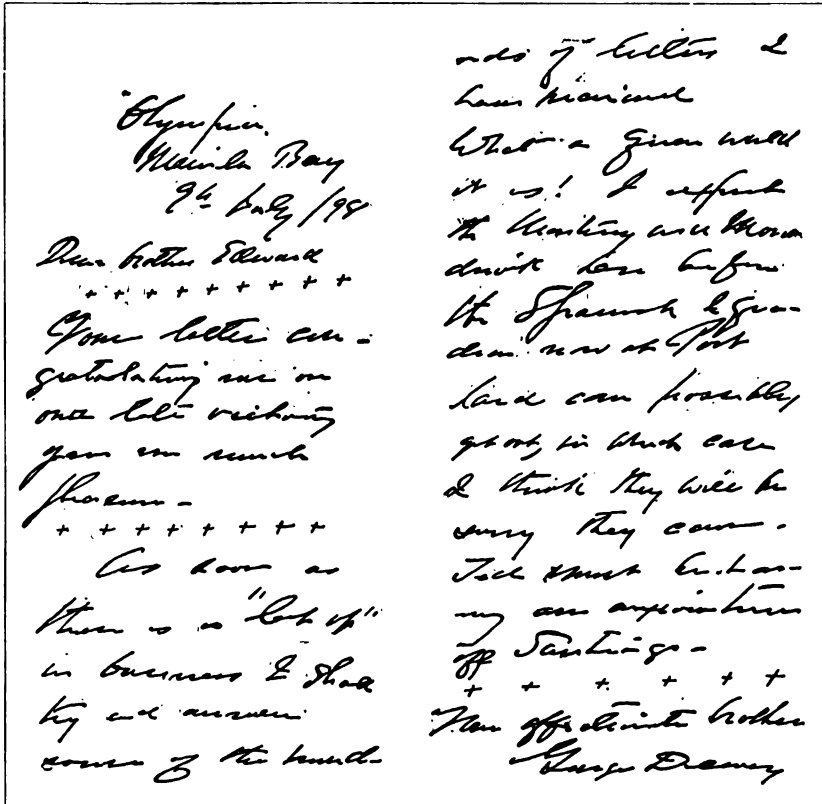 "Olympia,
Manila Bay
9th July /98
Dear brother Edward
+ + + + + + + + +
Your letter con-
gratulating me on
our late victory
gave me much
pleasure -
+ + + + + + + +
As soon as
there is a "let up"
in business I shall
try and answer
some of the hund-
reds of letters I
have received
What a queer world
it is! I expect
the Monterey and Monad-
nock here before
the Spanish Squa-
dron now at Port
Said can possibly
get out, in which case
I think they will be
sorry they came.
Ted must be hav-
ing an
off Santiago -
+ + + + + +
Your affectionate brother
George Dewey